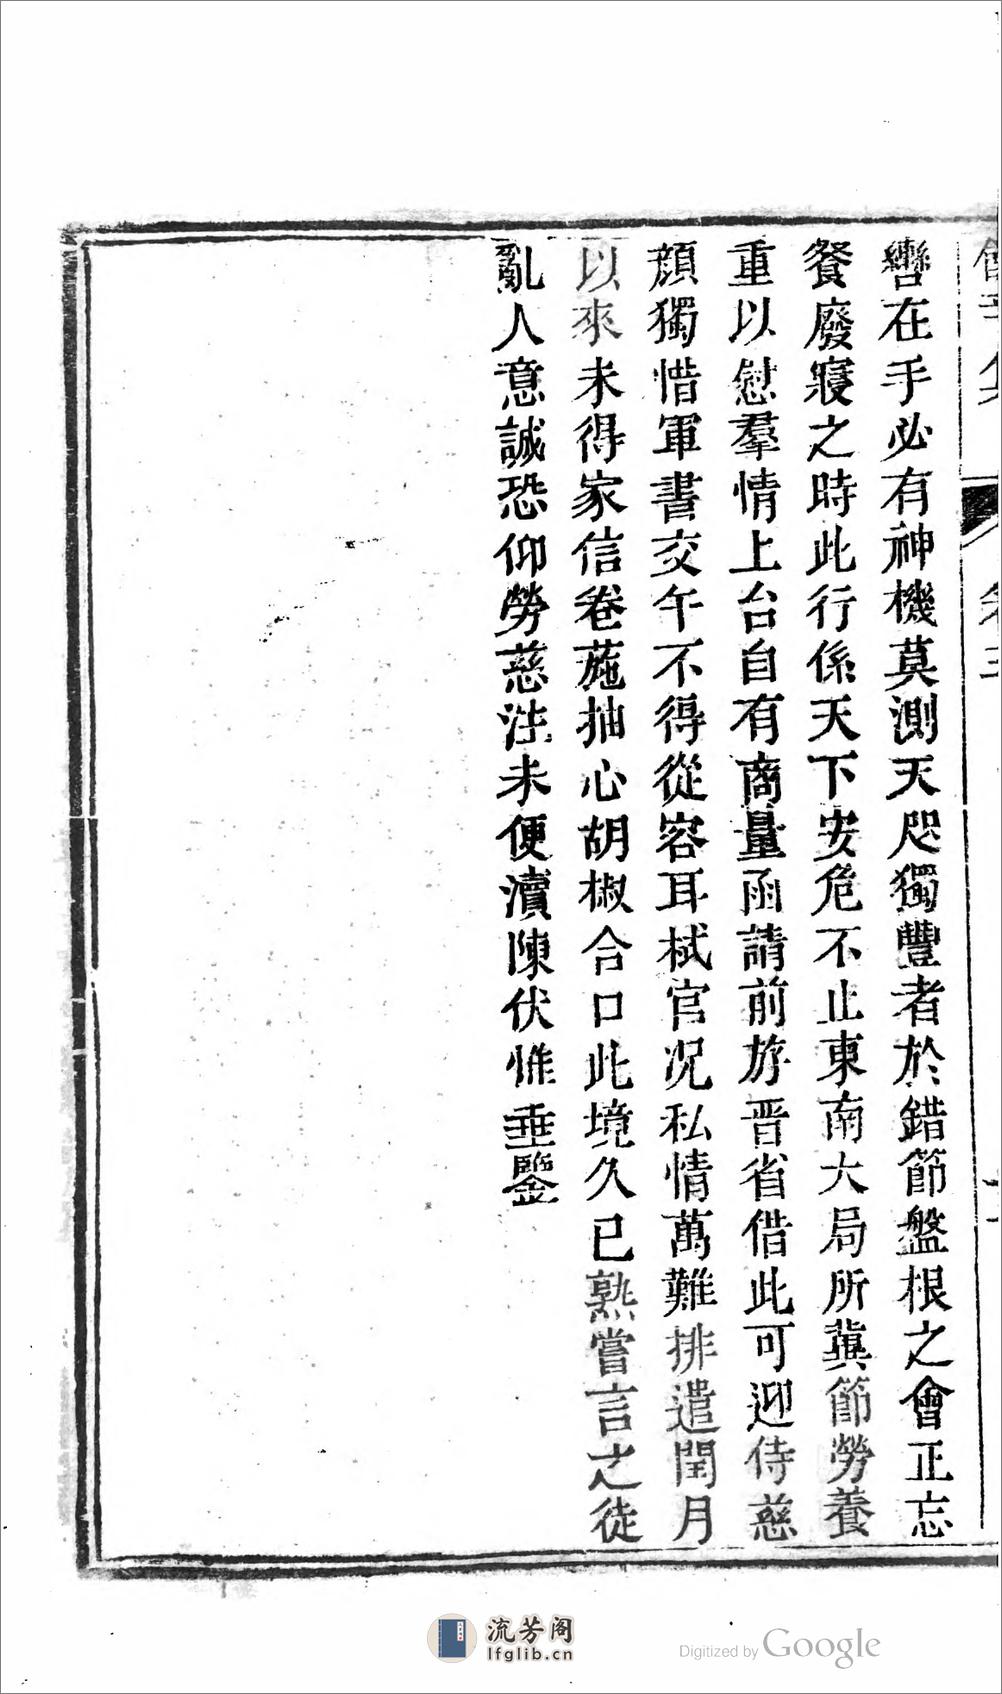 轡在手必有神機莫測天咫獨豐者於錯節盤根之會正忘
餐廢寢之時此行係天下安危不止東南大局所冀節勞養
重以慰羣情上台自有商量函請前斿晋省借此可迎侍慈
顏獨惜軍書交午不得從容耳栻官況私情萬難排遣閏月
以來未得家信卷葹抽心胡椒合口此境久已熟嘗言之徒
亂人意誠恐仰勞慈注未便瀆陳伏惟垂鑒
流芳阁
lfglib.cn
Digitized by Google